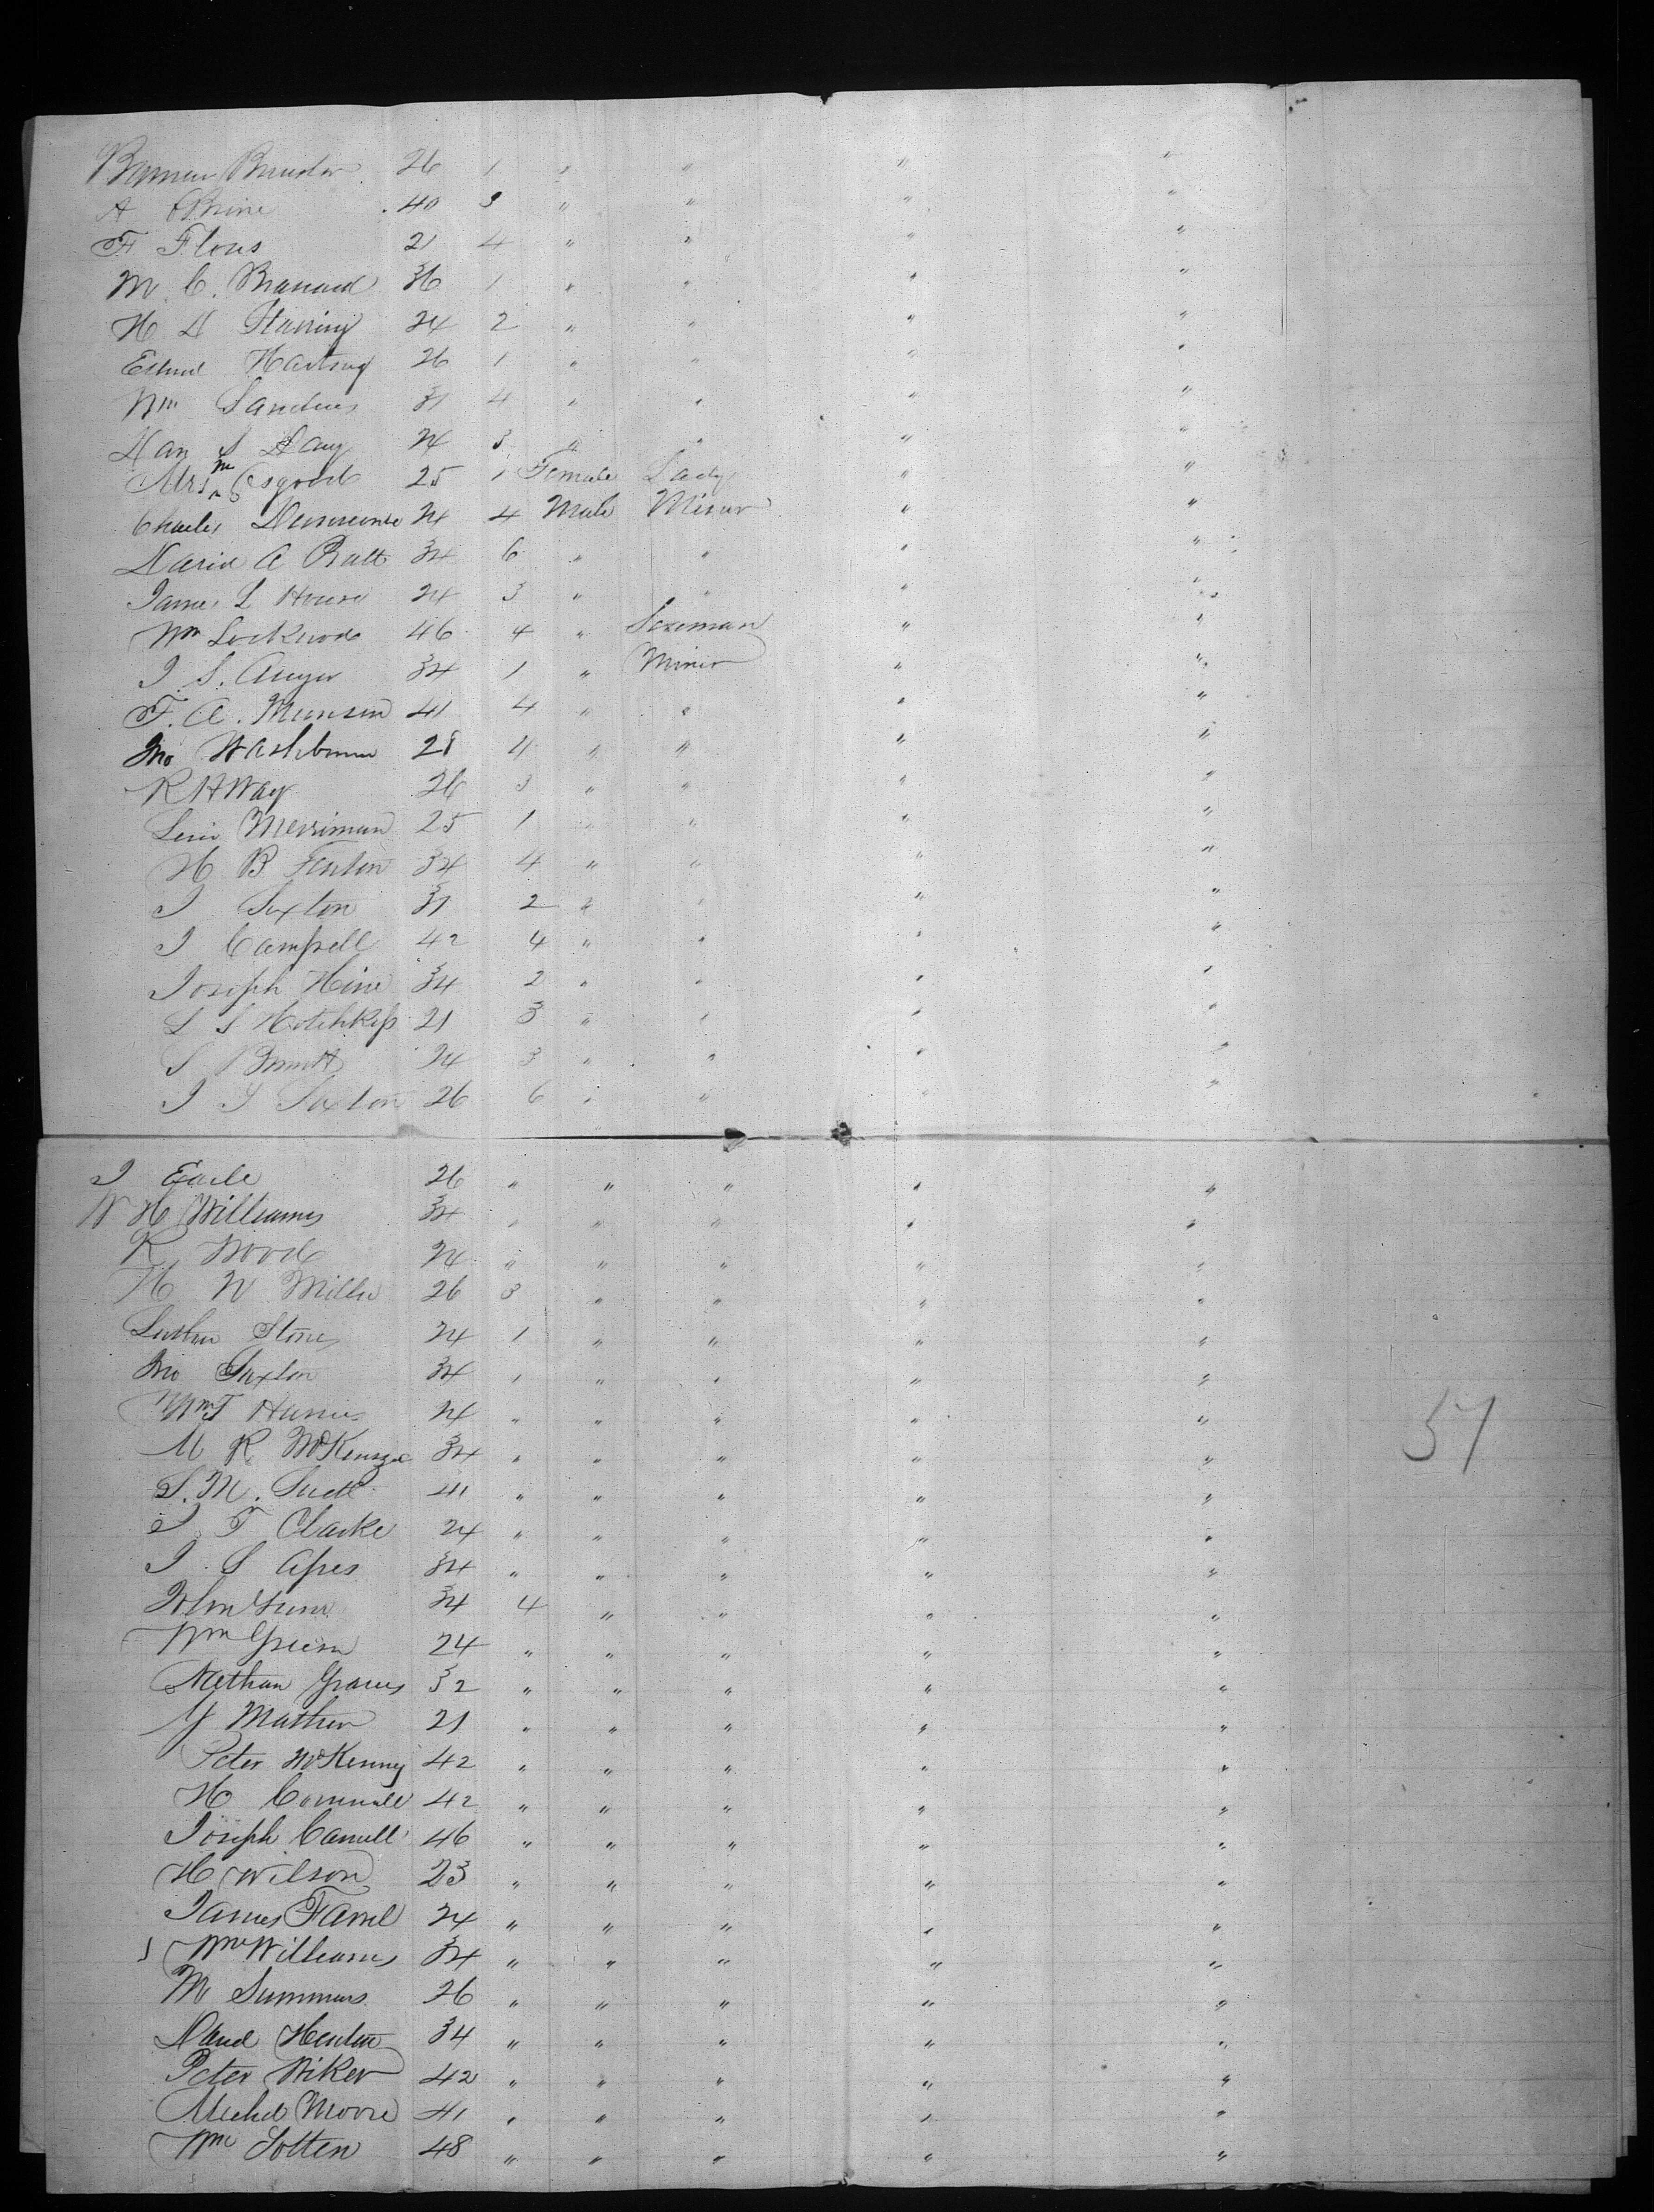 26 1 " " " "
A 40 3 " " " "
F Flous 21 4 " " " "
M. C. 36 1 " " " "
H D 24 2 " " " "
26 1 " " " "
Wm Sanders 31 4 " " " "
Dan S Day 24 3 " " " "
Mrs M Osgood 25 1 Female Lady " "
Charles 24 4 Male Miner " "
David A Pratt 34 6 " " " "
James L House 24 3 " " " "
Wm Lockwood 46 4 " " "
J. S. Auger 34 1 " Miner " "
F. A. Munson 41 4 " " " "
Jno Washburn 28 4 " " " "
R H Way 26 3 " " " "
Levi Merriman 25 1 " " " "
H B Fenton 34 4 " " " "
J Sexton 31 2 " " " "
J Campbell 42 4 " " " "
Joseph Hine 34 2 " " " "
L S Hotchkiss 21 3 " " " "
S 24 3 " " " "
J S Saxton 26 6 " " " "
J Earle 26 " " " " "
W H Williams 34 " " " " "
R Wood 24 " " " " "
H W Miller 26 3 " " " "
Luther Stone 24 1 " " " "
Jno Saxton 34 1 " " " "
Wm T 24 " " " " "
M R McKenzie 34 " " " " "
S. M. 41 " " " " "
J T Clarke 24 " " " " "
J. S Apes 34 " " " " "
John Gunn 34 4 " " " "
Wm Green 24 " " " " "
Nathan Graves 32 " " " " "
Y Mather 21 " " " " "
Peter McKenny 42 " " " " "
H 42 " " " " "
Joseph 46 " " " " "
H Wilson 23 " " " " "
James Farrel 24 " " " " "
Wm Williams 34 " " " " "
M Summers 26 " " " " "
David 34 " " " " "
Peter Wiker 42 " " " " "
Michel Moore 41 " " " " "
Wm Sotten 48 " " " " "
57